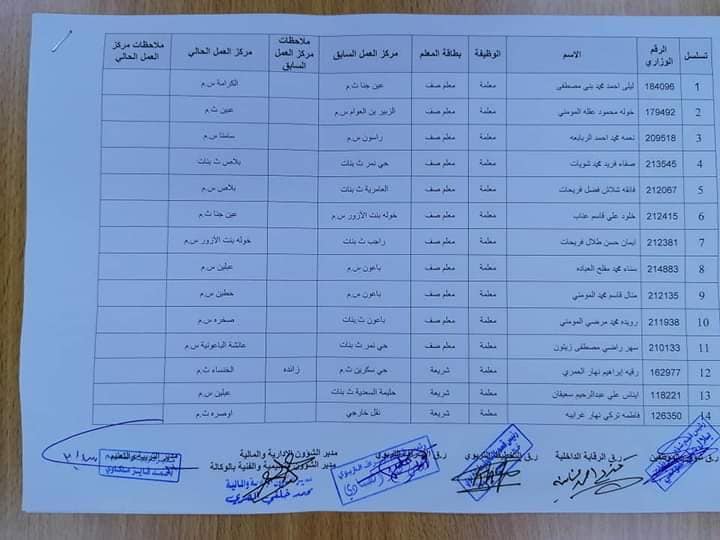 تسلسل الرقم الوزاري الاسم الوظيفة بطاقة المعلم مركز العمل السابق ملاحظات مركز العمل السابق مركز العمل الحالي ملاحظات مركز العمل الحالي
1 184096 ليلى احمد محمد بني مصطفى معلمة معلم صف عين جنا ث.م الكرامة س.م
2 179492 خوله محمود عقله المومني معلمة معلم صف الزبير بن العوام س.م عبين ث.م
3 209518 نعمه محمد احمد الربابعه معلمة معلم صف راسون س.م سامتا س.م
4 213545 صفاء فريد محمد شويات معلمة معلم صف حي نمر ث بنات بلاص ث بنات
5 212067 فائقه شلاش فضل فريحات معلمة معلم صف العامرية ث بنات بلاص س.م
6 212415 خلود علي قاسم عناب معلمة معلم صف خوله بنت الأزور س.م عين جنا ث.م
7 212381 ايمان حسن طلال فريحات معلمة معلم صف راجب ث بنات خوله بنت الأزور س.م
8 214883 سناء محمد مفلح العبابده معلمة معلم صف باعون س.م عبلين س.م
9 212135 منال قاسم محمد المومني معلمة معلم صف باعون س.م حطين س.م
10 211938 رويده محمد مرضي المومني معلمة معلم صف باعون ث بنات صخره س.م
11 210133 سهر راضي مصطفى زيتون معلمة معلم صف حي نمر ث بنات عائشة الباعونية س.م
12 162977 رقيه إبراهيم نهار العمري معلمة شريعة حي سكرين ث.م زائده الخنساء ث.م
13 118221 ايناس علي عبدالرحيم سعيفان معلمة شريعة حليمة السعدية ث بنات عبلين س.م
14 126350 فاطمه تركي نهار غرايبه معلمة شريعة نقل خارجي اوصره ث.م
ر.ق الرقابة الداخلية
مدير الشؤون الإدارية والمالية
مدير الشؤون التعليمية والفنية بالوكالة
مدير التربية والتعليم